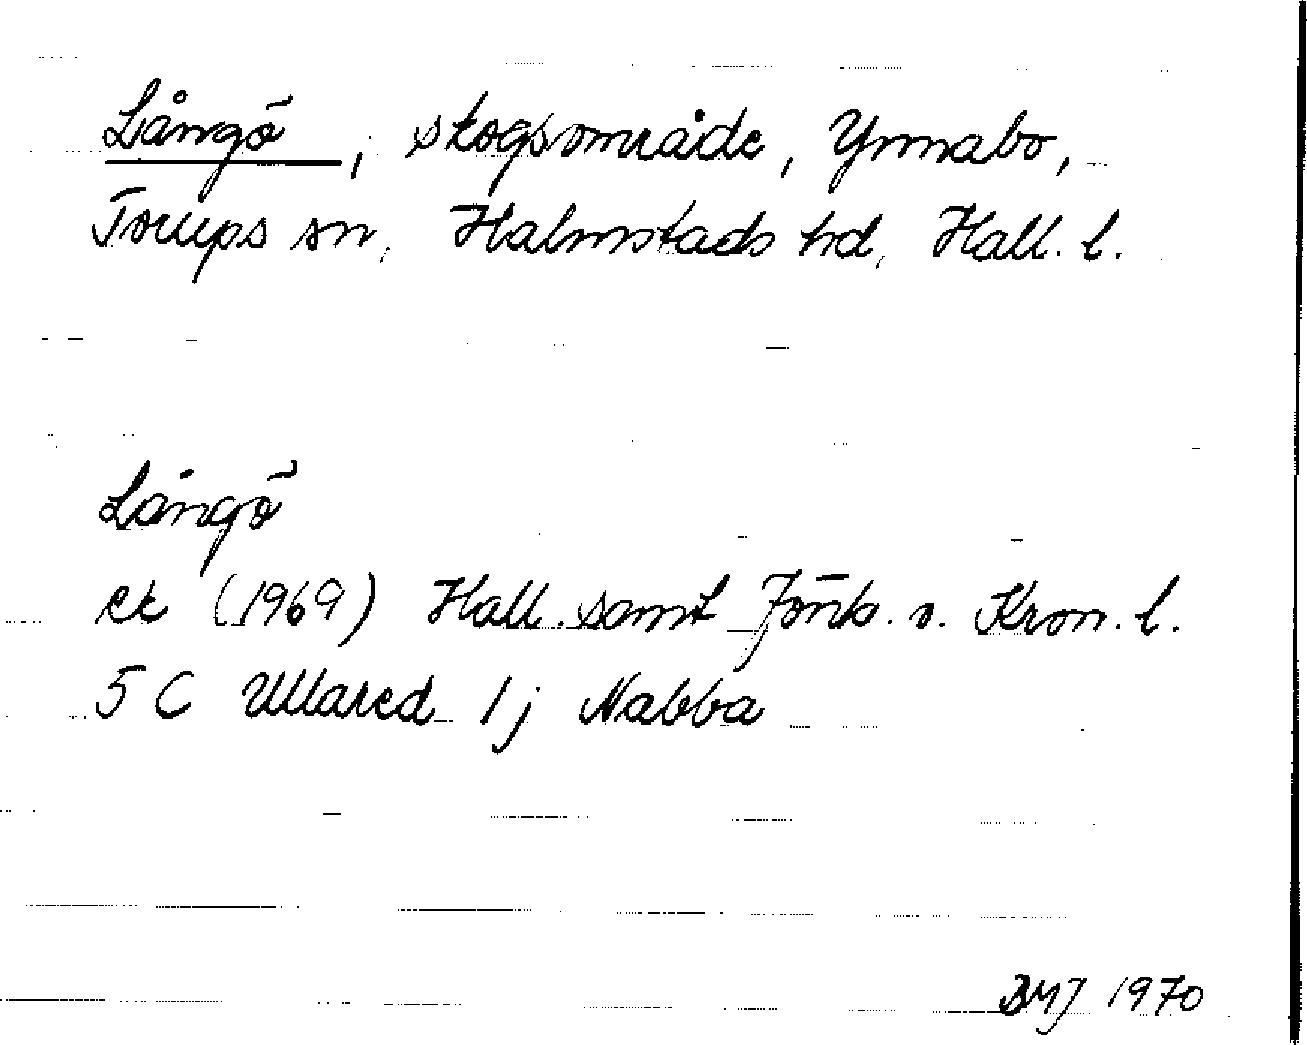 Långö, skogsområde, Ynnabo,
Torups sn, Halmstads hd, Hall. l.
Långö
ek (1969) Hall. samt Jönk. o. Kron. l.
5 C Ullared 1 j Nabba
BMJ 1970